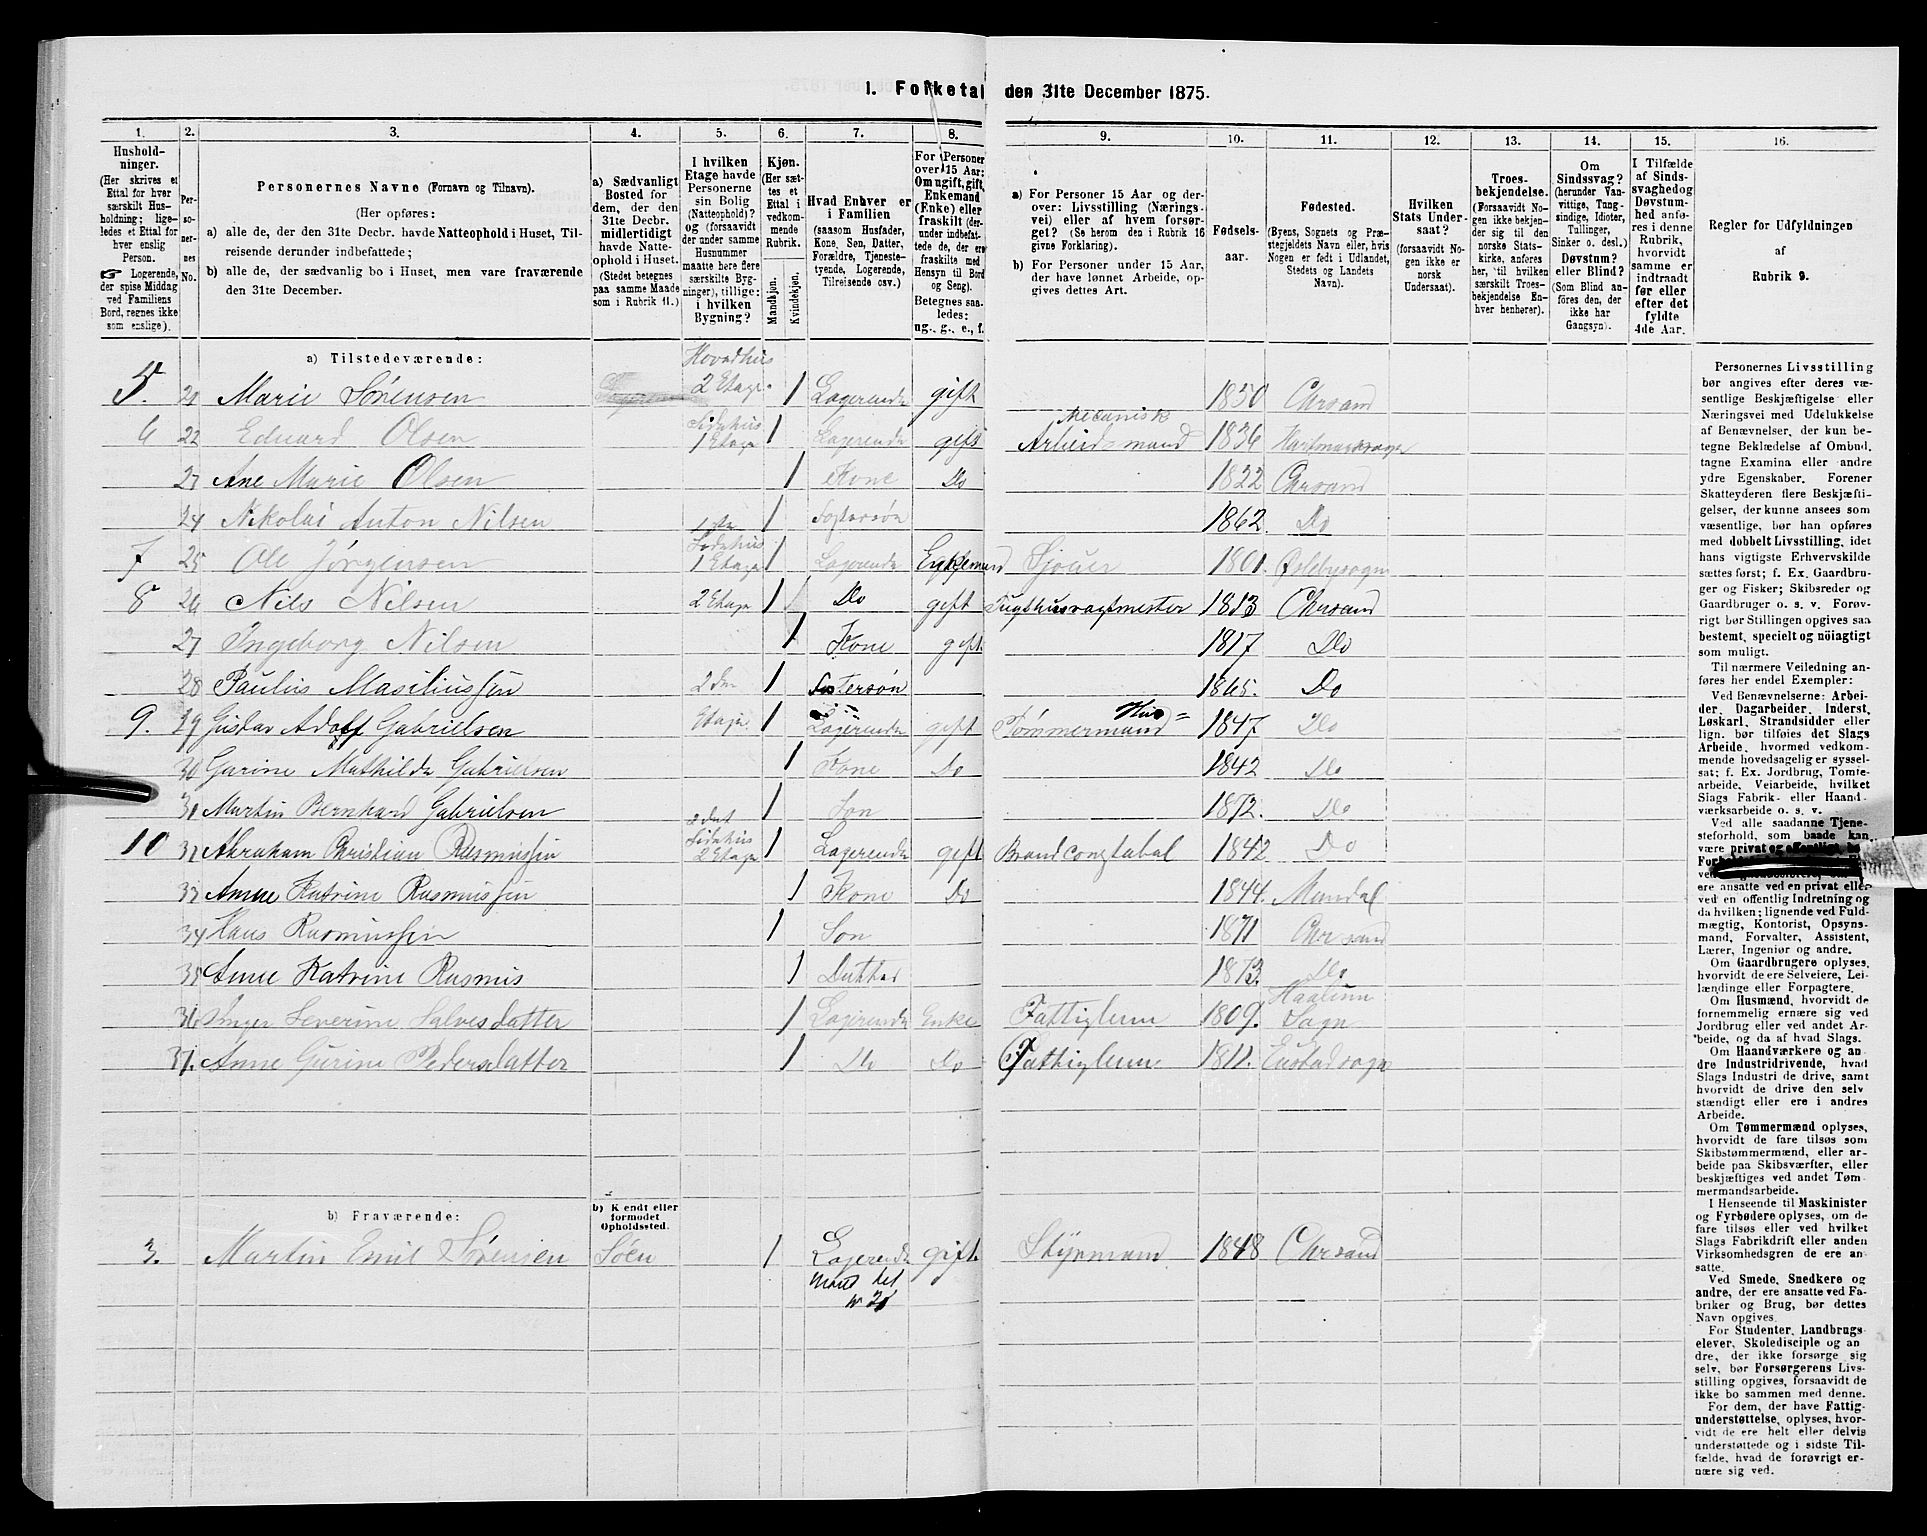 1. Folketal den 31te December 1875.
1. 2. 3. 4. 5. 6. 7. 8. 9. 10. 11. 12. 13. 14. 15. 16.
Hushold-
ninger.
(Her skrives et
Ettal for hver
særskilt Hus-
holdning; lige-
ledes et Ettal for
hver enslig
Person.
☞ Logerende,
der spise Middag
ved Familiens
Bord, regnes ikke
som enslige).
Per-
so-
ner-
nes
No.
Personernes Navne (Fornavn og Tilnavn).
(Her opføres:
a) alle de, der den 31te Decbr. havde Natteophold i Huset, Til-
reisende derunder indbefattede;
b) alle de, der sædvanlig bo i Huset, men vare fraværende
den 31te December.
a) Sædvanligt
Bosted for
dem, der den
31te Decbr.
midlertidigt
havde Natte-
ophold i Huset.
(Stedet betegnes
paa samme Maade
som i Rubrik 11.)
I hvilken
Etage havde
Personerne
sin Bolig
(Natteophold)?
og (forsaavidt
der under samme
Husnummer
maatte høre flere
særskilte Byg-
ninger), tillige:
i hvilken
Bygning?
Kjøn.
(Her sæt-
tes et
Ettal i
vedkom-
mende
Rubrik.
Mandkjøn.
Kvindekjøn.
Hvad Enhver er
i Familien
(saasom Husfader,
Kone, Søn, Datter,
Forældre, Tjeneste-
tyende, Logerende,
Tilreisende osv.)
For Personer
over 15 Aar:
Om ugift, gift,
Enkemand
(Enke) eller
fraskilt (der-
under indbefat-
tede de, der ere
fraskilte med
Hensyn til Bord
og Seng).
Betegnes saa-
ledes:
ug., g., e., f.
a) For Personer 15 Aar og der-
over: Livsstilling (Nærings-
vei) eller af hvem forsør-
get? (Se herom den i Rubrik 16
givne Forklaring).
b) For Personer under 15 Aar,
der have lønnet Arbeide, op-
gives dettes Art.
Fødsels-
aar.
Fødested.
(Byens, Sognets og Præ-
stegjeldets Navn eller, hvis
Nogen er født i Udlandet,
Stedets og Landets
Navn).
Hvilken
Stats Under-
saat?
(forsaavidt No-
gen ikke er
norsk
Undersaat).
Troes-
bekjendelse.
(Forsaavidt No-
gen ikke bekjen-
der sig til den
norske Stats-
kirke, anføres
her, til hvilken
særskilt Troes-
bekjendelse En-
hver henhører).
Om
Sindssvag?
(herunder Van-
vittige, Tung-
sindige, Idioter,
Tullinger,
Sinker o. desl.)
Døvstum?
eller Blind?
(Som Blind an-
føres den, der
ikke har
Gangsyn).
I Tilfælde
af Sinds-
svaghed og
Døvstum-
hed anfø-
res i denne
Rubrik,
hvorvidt
samme er
indtraadt
før eller
efter det
fyldte
4de Aar.
Regler for Udfyldningen
af
Rubrik 9.
a) Tilstedeværende:
5. 21 Marie Sørensen Hovedhus 2 Etage 1 Logerende gift 1850 Chrsand
6 22 Eduard Olsen Sidehus 1 Etage 1 Logerende gift Mecanisk Arbeidsmand 1836
23 Ane Marie Olsen 1 Kone Do 1822 Chrsand
24 Nikolai Anton Nilsen 1 1862 Do
7 25 Ole Jørgensen Sidehus 1 Etage 1 Logerende Enkemand Sjouer 1801. Øslebysogn
8 26 Nils Nilsen 2 Etage 1 Do gift Tugthusvagtmester 1813 Chrsand
27 Ingeborg Nilsen 1 Kone gift 1817 Do
28 Paulus Masiliussen 2den 1 1865. Do
9. 29 Gustav Adolf Gabrielsen Etage 1 Logerende gift Tømmermand Hus= 1847 Do
30 Gurine Mathilde Gabrielsen 1 Kone Do 1842 Do
31 Martin Bernhard Gabrielsen 1 Son 1872. Do
10 32 Abraham Christian Rasmussen Sidehus 2 Etage 1 Logerende gift Brandcongtabal 1842 Do
33 Anne Katrine Rasmussen 1 Kone Do 1844. Mandal
34 Hans Rasmussen 1 Son 1871 Chrsand
35 Anne Katrine Rasmus 1 Datter 1873. Do
36 Inger Severine Salvesdatter 1 Logerende Enke Fattiglem 1809. Haalum Sogn
37. Anne Gurine Pedersdatter 1 Do Do Fattiglem 1811.
b) Fraværende:
b) Kjendt eller
formodet
Opholdssted.
3. Martin Emil Sørensen Söen 1 Logerende gift Stýrmand 1848 Chrsand
Mand til
N 21
Personernes Livsstilling
bør angives efter deres væ-
sentlige Beskjæftigelse eller
Næringsvei med Udelukkelse
af Benævnelser, der kun be-
tegne Beklædelse af Ombud,
tagne Examina eller andre
ydre Egenskaber. Forener
Skatteyderen flere Beskjæfti-
gelser, der kunne ansees som
væsentlige, bør han opføres
med dobbelt Livsstilling, idet
hans vigtigste Erhvervskilde
sættes først; f. Ex. Gaardbru-
ger og Fisker; Skibsreder og
Gaardbruger o. s. v. Forøv-
rigt bør Stillingen opgives saa
bestemt, specielt og nöiagtigt
som muligt.
Til nærmere Veiledning an-
føres her endel Exempler:
Ved Benævnelserne: Arbei-
der, Dagarbeider, Inderst,
Løskarl, Strandsidder eller
lign. bør tilføies det Slags
Arbeide, hvormed vedkom-
mende hovedsagelig er syssel-
sat; f. Ex. Jordbrug, Tomte-
arbeide, Veiarbeide, hvilket
Slags Fabrik- eller Haand-
værksarbeide o. s. v.
Ved alle saadanne Tjene-
steforhold, som baade kan
være privat og offentligt, bø
ere ansatte ved en privat eller
ved en offentlig Indretning og
da hvilken; lignende ved Fuld-
mægtig, Kontorist, Opsyns-
mand, Forvalter, Assistent,
Lærer, Ingeniør og andre.
Om Gaardbrugere oplyses,
hvorvidt de ere Selveiere, Lei-
lændinge eller Forpagtere.
Om Husmænd, hvorvidt de
fornemmelig ernære sig ved
Jordbrug eller ved andet Ar-
beide, og da af hvad Slags.
Om Haandværkere og an-
dre Industridrivende, hvad
Slags Industri de drive, samt
hvorvidt de drive den selv-
stændigt eller ere i andres
Arbeide.
Om Tømmermænd oplyses,
hvorvidt de fare tilsøs som
Skibstømmermænd, eller ar-
beide paa Skibsværfter, eller
beskjæftiges ved andet Tøm-
mermandsarbeide.
I Henseende til Maskinister
og Fyrbødere oplyses, om de
fare tilsøs eller ved hvilket
Slags Fabrikdrift eller anden
Virksomhedsgren de ere an-
satte.
Ved Smede, Snedkere og
andre, der ere ansatte ved Fa-
briker og Brug, bør dettes
Navn opgives.
For Studenter, Landbrugs-
elever, Skoledisciple og an-
dre, der ikke forsørge sig
selv, bør Forsørgerens Livs-
stilling opgives, forsaavidt de
ikke bo sammen med denne.
For dem, der have Fattig-
understøttelse, oplyses, hvor-
vidt de ere helt eller delvis
understøttede og i sidste Til-
fælde, hvad de forøvrigt er-
nære sig ved.